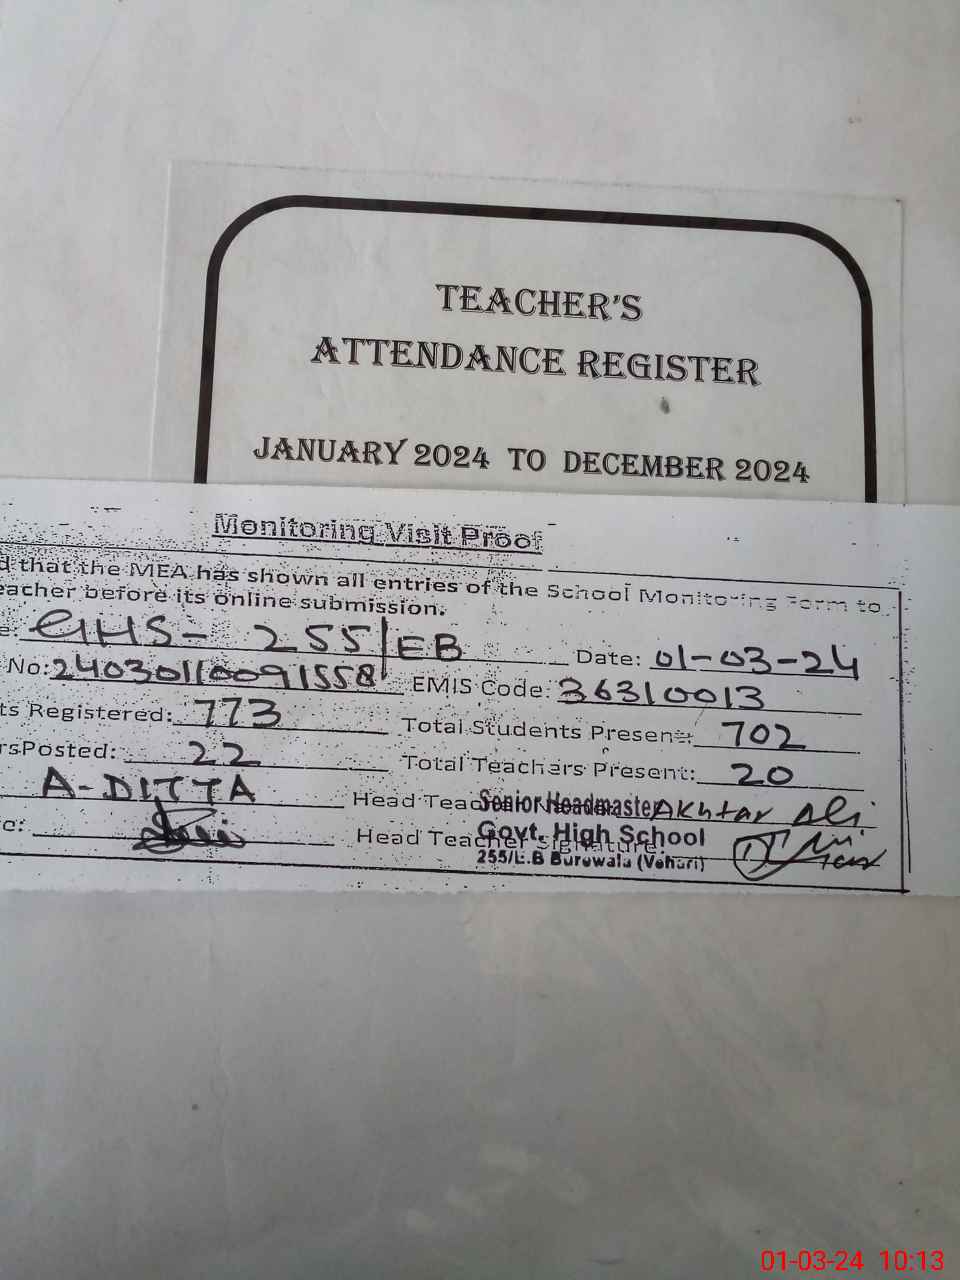 TEACHER'S
ATTENDANCE REGISTER
JANUARY 2024 TO DECEMBER 2024
Monitoring Visit Proof
d that the MEA has shown all entries of the School Monitoring Form to
eacher before its online submission.
e: GHS- 255/EB Date: 01-03-24
No: 240301100091558 EMIS Code: 36310013
ts Registered: 773 Total Students Present: 702
rsPosted: 22 Total Teachers Present: 20
A-DITTA Head Teacher Senior Headmaster Akhtar Ali
e: Head Teacher Signature: Govt. High School
255/E.B Burewala (Vehari)
01-03-24 10:13